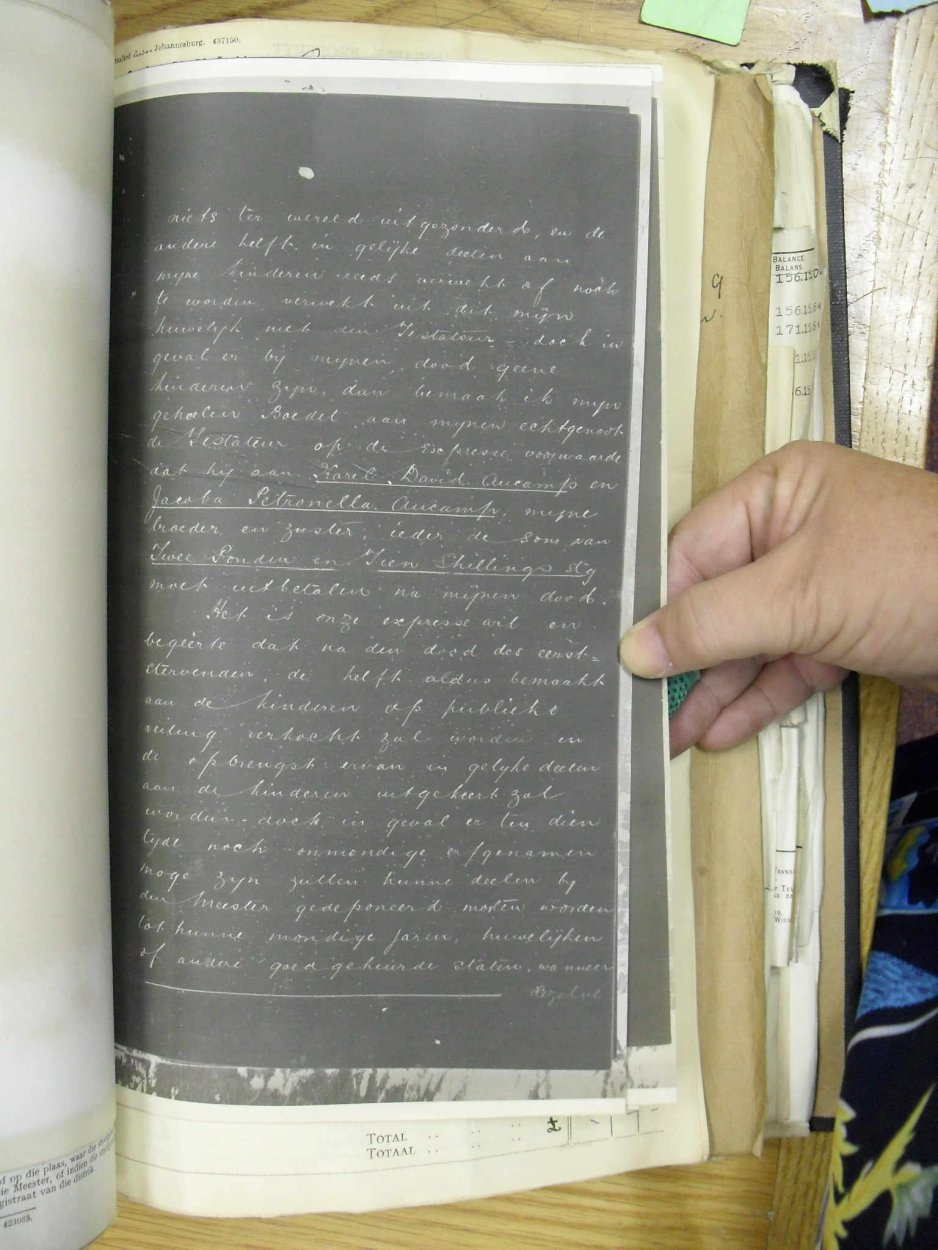 Johannesburg. 437150.
niets ter wereld uitgezonderd, en de
andere helft in gelijke deelen aan
mijne kinderen reeds verwekt of noch
te worden verwekt uit dit mijn
huwelijk met den Testateur - doch in
geval er bij mijnen dood geene
kinderen zijn, dan bemaak ik mijn
geheelen Boedel aan mijnen echtgenoot
de Testateur op de expresse voorwaarde
dat hij aan Karel David Aucamp en
Jacoba Petronella Aucamp, mijne
broeder en zuster, ieder de som van
Twee Ponden en Tien Shillings stg
moet uitbetalen na mijnen dood.
Het is onze expresse wil en
begeerte dat na den dood des eerst=
stervenden, de helft aldus bemaakt
aan de kinderen op publieke
veiling verkocht zal worden en
de opbrengst ervan in gelyke deelen
aan de kinderen uitgekeert zal
worden - doch in geval er ten dien
tyde noch onmondige erfgenamen
moge zyn zullen hunne deelen by
den Meester gedeponeerd moeten worden
tot hunne mondige jaren, huwelijken
of andere goedgekeurde staten, wanneer
dezelve
BALANCE
BALANS
156.15.6
171.15.6
6.15
TOTAL .. £
TOTAAL ..
of op die plaas, waar die
die Meester, of indien die
gistraat van die distrik
423065.